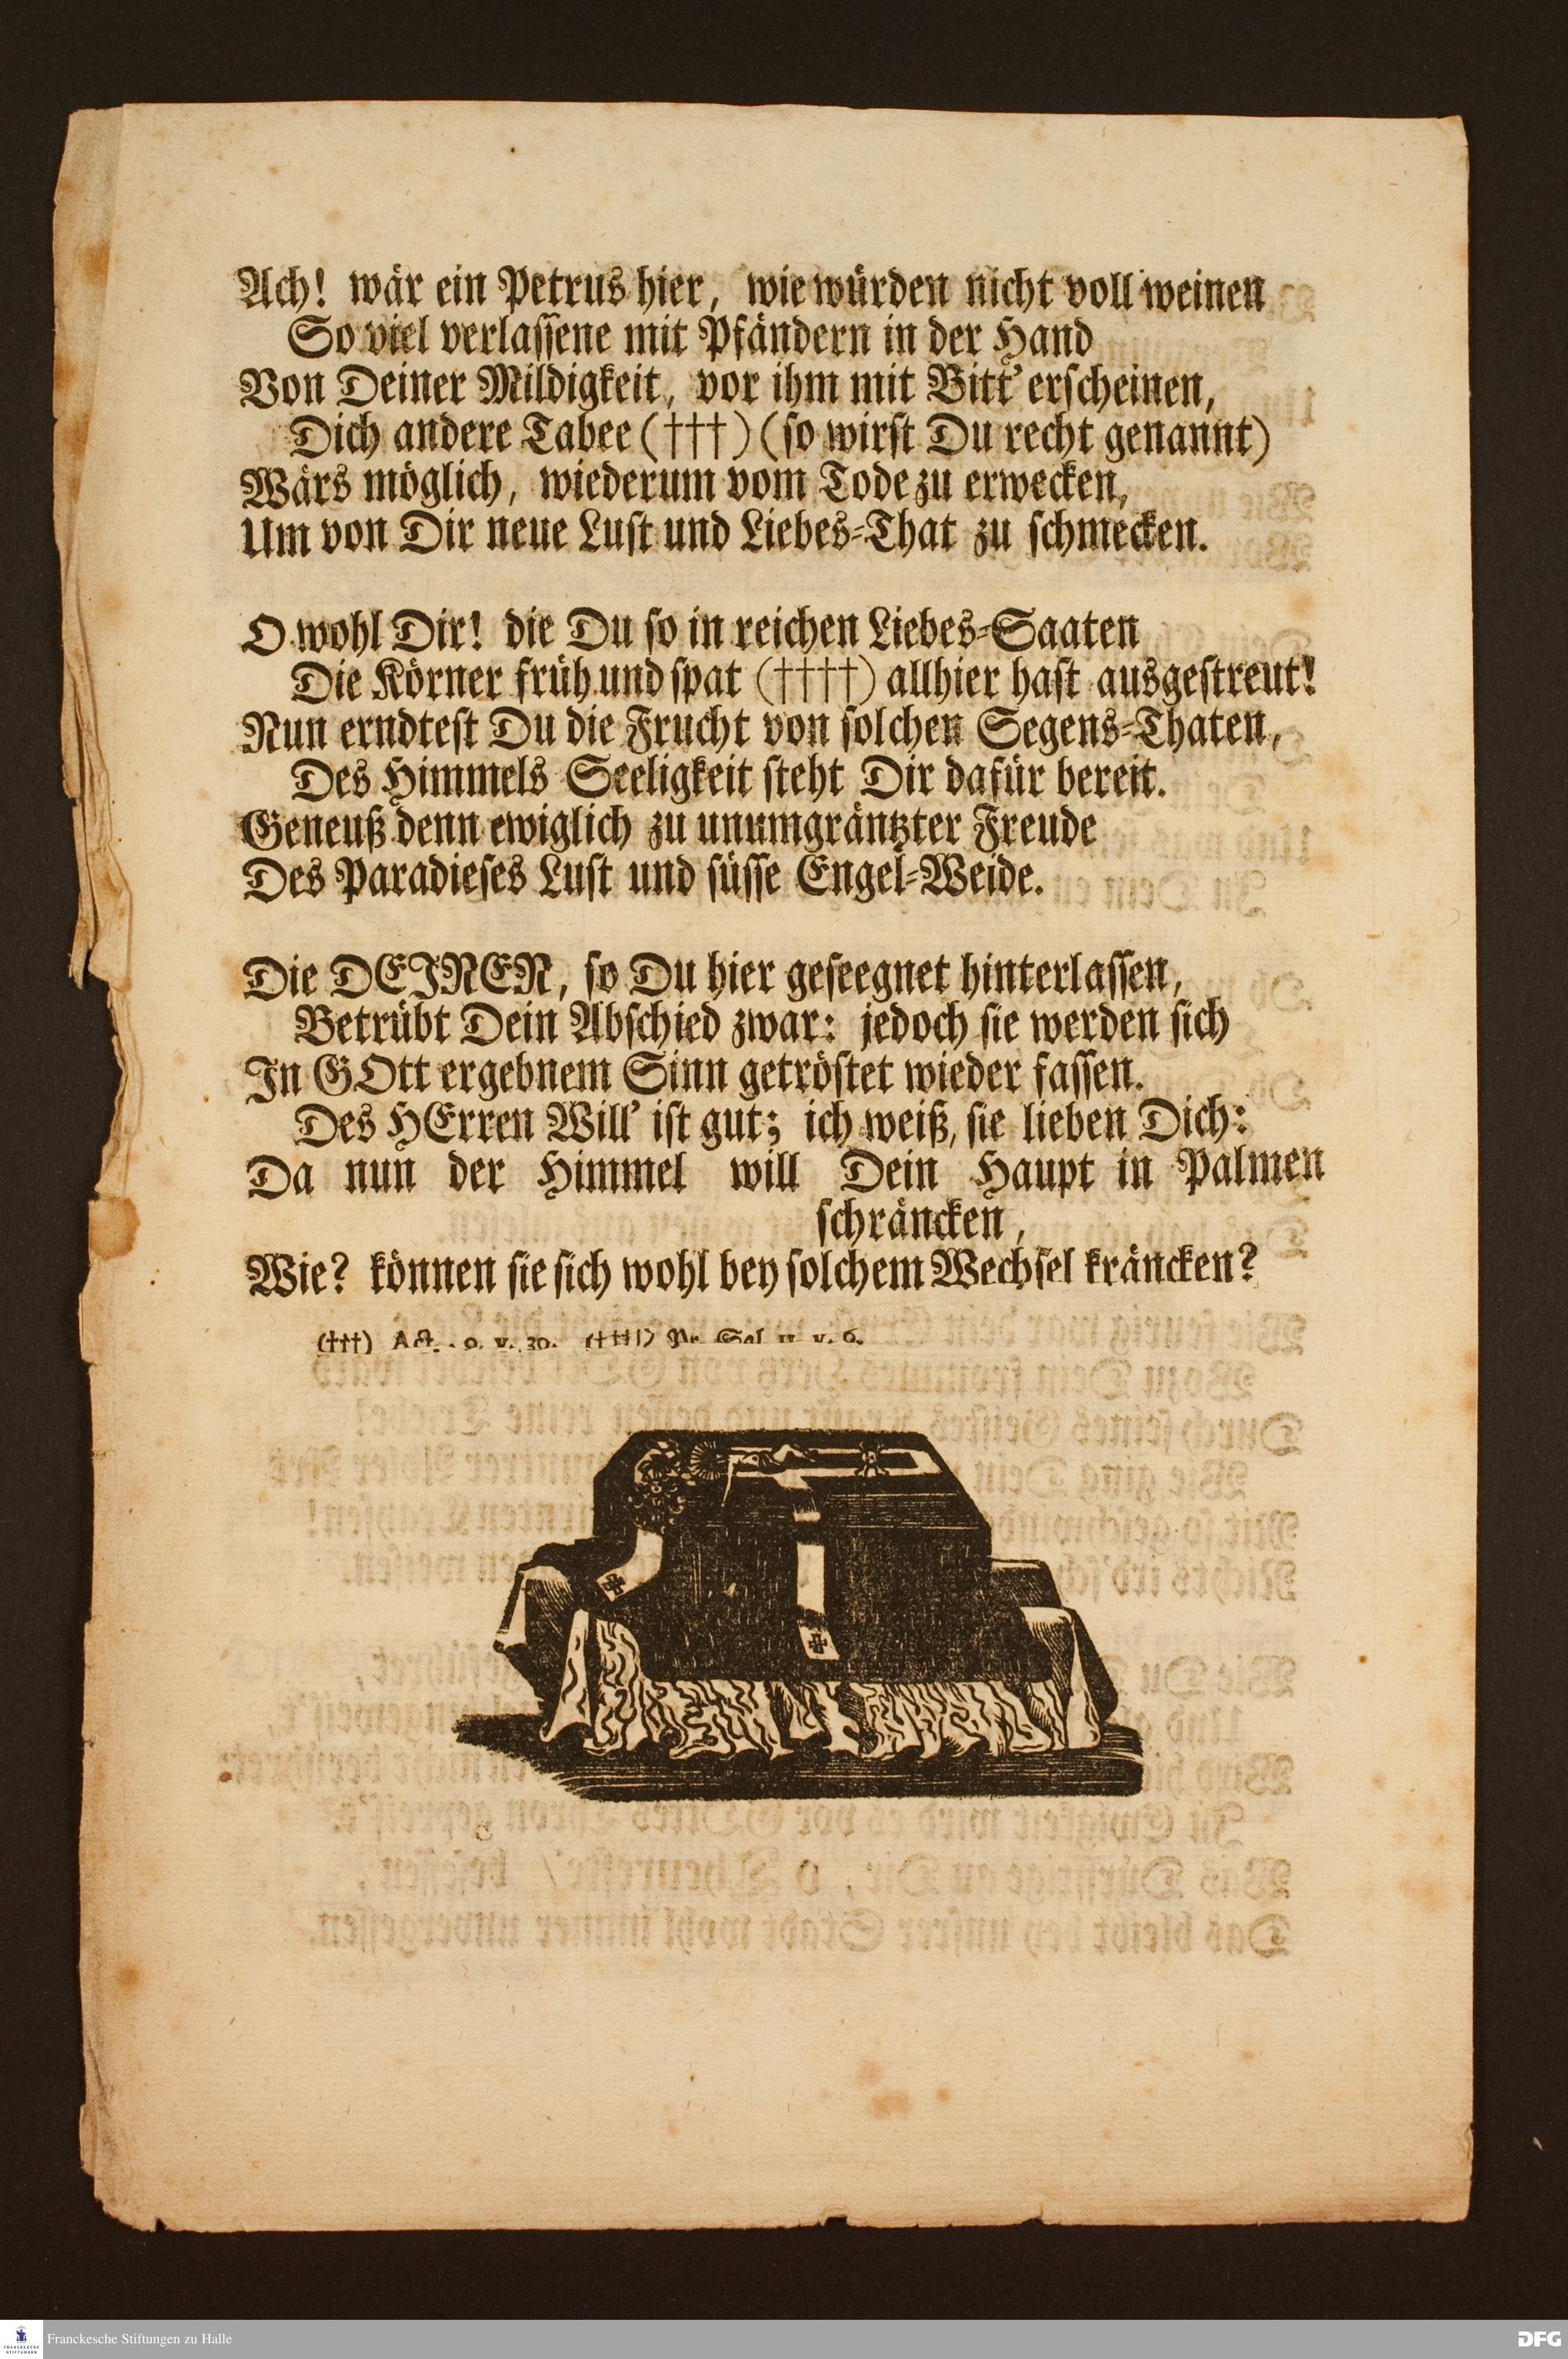 Ach! wär ein Petrus hier, wie würden nicht voll weinen
So viel verlassene mit Pfändern in der Hand
Von Deiner Mildigkeit, vor ihm mit Bitt' erscheinen,
Dich andere Tabee (†††) (so wirst Du recht genannt)
Wärs möglich, wiederum vom Tode zu erwecken,
Um von Dir neue Lust und Liebes-That zu schmecken.
O wohl Dir! die Du so in reichen Liebes-Saaten
Die Körner früh und spat (††††) allhier hast ausgestreut!
Nun erndtest Du die Frucht von solchen Segens-Thaten,
Des Himmels Seeligkeit steht Dir dafür bereit.
Geneuß denn ewiglich zu unumgräntzter Freude
Des Paradieses Lust und süsse Engel-Weide.
Die DEJNEN, so Du hier geseegnet hinterlassen,
Betrübt Dein Abschied zwar: jedoch sie werden sich
Jn GOtt ergebnem Sinn getröstet wieder fassen.
Des HErren Will' ist gut; ich weiß, sie lieben Dich:
Da nun der Himmel will Dein Haupt in Palmen
schräncken,
Wie? können sie sich wohl bey solchem Wechsel kräncken?
(†††) Act. 9. v. 39. (††††) Pr. Sal. 11. v. 6.
Franckesche Stiftungen zu Halle
DFG